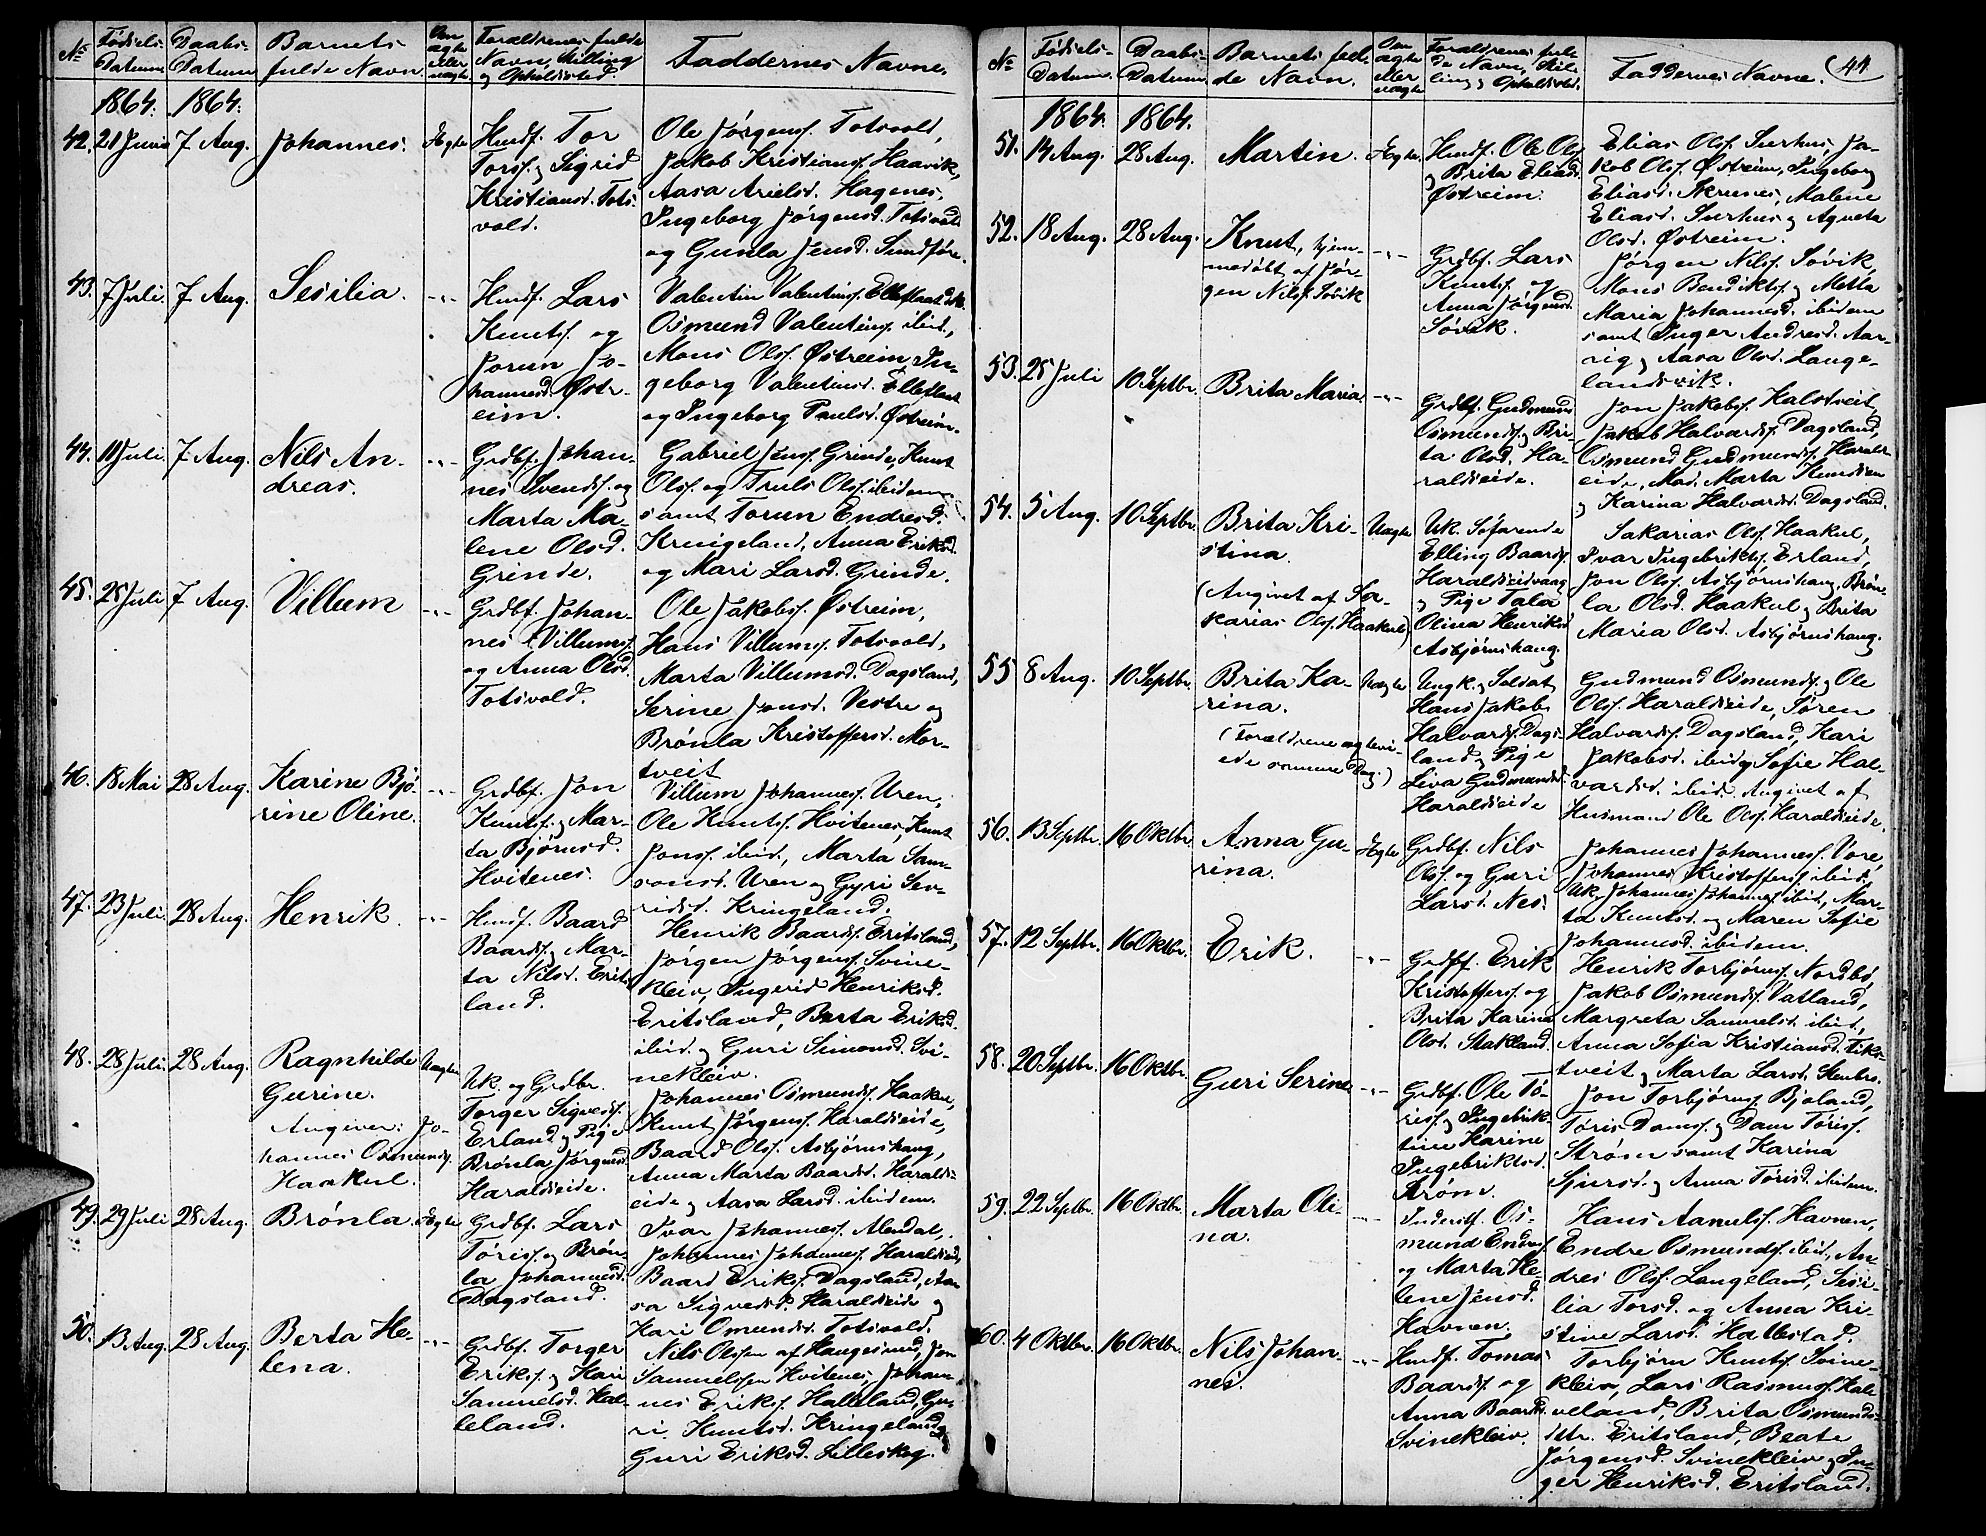 №
Fødsels-
Datum
Daabs-
Datum
Barnets
fulde Navn.
Om
ægte
eller
uægte
Forældrenes fulde
Navn, Stilling
og Opholdssted
Faddernes Navne.
1864. 1864.
42. 21 Juni 7 Aug. Johannes. Ægte
Husmf. Tor
Torsf. og Sigrid
Kristiansd. Tots-
vold.
Ole Jørgensf. Totsvold,
Jakob Kristiansf. Haavik,
Aasa Arielsd. Hagenes,
Ingeborg Jørgensd. Totsvold
og Gunla Jensd. Sundføre.
43. 7 Juli. 7 Aug. Sesilia. -"-
Husmf. Lars
Knutsf. og
Jorun Jo-
hannesd. Østr-
eim.
Valentin Valentinsf.
Osmund Valentinsf. ibid,
Mons Olsf. Østreim, In-
geborg Valentinsd.
og Ingeborg Paulsd. Østreim.
44. 10 Juli. 7 Aug. Nils An-
dreas. -"-
Grdbf. Johan-
nes Svendsf. og
Marta Ma-
lene Olsd.
Grinde.
Gabriel Jensf. Grinde, Knut
Olsf. og Truls Olsf. ibidem
samt Torun Endresd.
Kringeland, Anna Eriksd.
og Mari Larsd. Grinde.
45. 25 Juli 7 Aug. Villum -"-
Grdbf. Johan-
nes Villumsf.
og Anna Olsd.
Totsvold.
Ole Jakobsf. Østreim,
Hans Villumsf. Totsvold,
Marta Villumsd. Dagsland,
Serine Jonsd. Vestre og
Brønla Kristoffersd. Mor-
tveit
46. 18 Mai 28 Aug. Karine Bjø-
rine Oline. -"-
Grdbf. Jon
Knutsf. og Mar-
ta Bjørnsd.
Hvitenes.
Villum Johannesf. Uren,
Ole Knutsf. Hvitenes, Knut
Jonsf. ibid., Marta Sam-
sonsd. Uren og Gyri Sev-
ridsd. Kringeland.
47. 23 Juli. 28 Aug. Henrik. -"-
Husmf. Baard
Baardsf. og Mar-
ta Nilsd. Erits-
land.
Henrik Baardsf. Eritsland,
Jørgen Jørgensf. Svine-
kleiv, Ingerid Henriksd.
Eritsland, Berta Eriksd.
ibid. og Guri Simonsd. Svi-
nekleiv.
48. 28 Juli. 28 Aug. Ragnhilde
Gurine.
Angiver: Jo-
hannes Osmundsf.
Haakul.
Uægte
Uk. og Grdbr.
Torger Sigvedsf.
Erland og Pige
Brønla Jørgensd.
Haraldseide.
Johannes Osmundsf. Haakul,
Knut Jørgensf. Haraldseide,
Baard Olsf. Asbjørnshaug,
Anna Marta Baardsd. Haralds-
eide og Aasa Larsd. ibidem.
49. 29 Juli 28 Aug. Brønla. Ægte
Grdbf. Lars
Tørisf. og Brøn-
la Johannesd.
Dagsland.
Ivar Johannesf. Alendal,
Johannes Johannesf. Haraldseide,
Baard Eriksf. Dagsland, Aa-
sa Sigvedsd. Haraldseide og
Kari Omundsd. Totsvold.
50. 13 Aug. 28 Aug. Berta He-
lena. -"-
Grdbf. Torger
Eriksf. og Kari
Samuelsd. Hal-
leland.
Nils Olssen af Haugesund, Jon
Samuelssen Hvitenes, Johan-
nes Eriksf. Halleland, Gu-
ri Knutsd. Kringeland og
Guri Eriksd. Lilleskog.
№
Fødsels-
Datum.
Daabs-
Datum.
Barnets ful-
de Navn.
Om
ægte
eller
uægte
Forældrenes ful-
de Navn, Stil-
ling og Opholdssted.
Faddernes Navne. (41
1864. 1864.
51. 14 Aug. 28 Aug. Martin. Ægte.
Husmf. Ole Olsf.
og Brita Eliasd.
Østreim.
Elias Olsf. Surhus, Ja-
kob Olsf. Østreim, Ingeborg
Eliasd. Skrunes, Malene
Eliasd. Surhus og Agneta
Olsd. Østreim.
52. 18 Aug. 28 Aug. Knut, hjem-
medøbt af Jør-
gen Nilsf. Søvik -"-
Grdbf. Lars
Knutsf. og
Anna Jørgensd.
Søvik.
Jørgen Nilsf. Søvik,
Mons Bendiktsf. og Metta
Maria Johannesd. ibidem
samt Inger Andresd. Aar-
vig og Aasa Olsd. Lange-
landsvik.
53. 25 Juli 10 Septbr. Brita Maria -"-
Grdbf. Gudmund
Osmundsf. og Bri-
ta Olsd. Ha-
raldseide.
Jon Jakobsf. Kalstveit,
Jakob Halvardsf. Dagsland,
Osmund Gudmundsf. Haralds-
eide, Mad. Marta
og Karina Halvardsd. Dagsland.
54. 5 Aug. 10 Septbr. Brita Kri-
stina.
(Angivet af Sa-
karias Olsf. Haakul)
Uægte
Uk. Søfarende
Elling Baardsf.
Haraldseidvaag
og Pige Tala
Olina Henriksd.
Asbjørnshaug.
Sakarias Olsf. Haakul,
Ivar Ingebriktsf. Erland,
Jon Olsf. Asbjørnshaug, Brøn-
la Olsd. Haakul og Brita
Maria Olsd. Asbjørnshaug.
55 8 Aug. 10 Septbr. Brita Ka-
rina.
(Forældrene ægtevi-
ede samme Dag.)
Uægte
Ungk. og Soldat
Hans Jakob
Halvardsf. Dags-
land og Pige
Siva Gudmundsd.
Haraldseide
Gudmund Osmundsf. og Ole
Olsf. Haraldseide, Søren
Halvardsf. Dagsland, Kari
Jakobsd. ibid og Sofie Hal-
vardsd. ibid. Angivet af
Husmand Ole Olsf. Haraldseide.
56. 13 Septbr. 16 Oktbr. Anna Gu-
rina. Ægte
Grdbf. Nils
Olsf. og Guri
Larsd. Nes.
Johannes Johannesf. Vore,
Johannes Kristoffersf. ibid.,
Uk. Johannes Johannesf. ibid., Mar-
ta Knutsd. og Maren Sofie
Johannesd. ibidem.
57. 12 Septbr. 16 Oktbr. Erik. -"-
Grdbf. Erik
Kristoffersf. og
Brita Karina
Olsd. Stakland.
Henrik Torbjørnsf. Nordbø,
Jakob Osmundsf. Vatland,
Margreta Samuelsd. ibid,
Anna Sofia Kristiansd. Fiks-
tveit og Marta Larsd. Stenbro.
58. 20 Septbr. 16 Oktbr. Guri Serine -"-
Grdbf. Ole Tø-
risf. og Ingebrik-
tine Karine
Ingebriktsd.
Strøm.
Jon Torbjørnsf. Bjoland,
Tøris Daunsf. og Daun Tørisf.
Strøm samt Karina
Sjursd. og Anna Tørisd. ibidem.
59. 22 Septbr. 16 Oktbr. Marta Oli-
na. -"-
Inderstf. Os-
mund Endresf.
og Marta He-
lene Jensd.
Havnen.
Hans Aanulsf. Havnen,
Endre Osmundsf. ibid., An-
dres Olsf. Langeland, Sesi-
lia Torsd. og Anna Kri-
stine Larsd. Hallestad.
60. 4 Oktbr. 16 Oktbr. Nils Johan-
nes. -"-
Husmf. Tomas
Baardsf. og
Anna Baardsd.
Svinekleiv.
Torbjørn Knutsf. Svine-
kleiv, Lars Rasmusf. Hal-
veland, Brita Osmunds-
dtr. Eritsland, Beate
Jørgensd. Svinekleiv og In-
ger Henriksd. Eritsland.